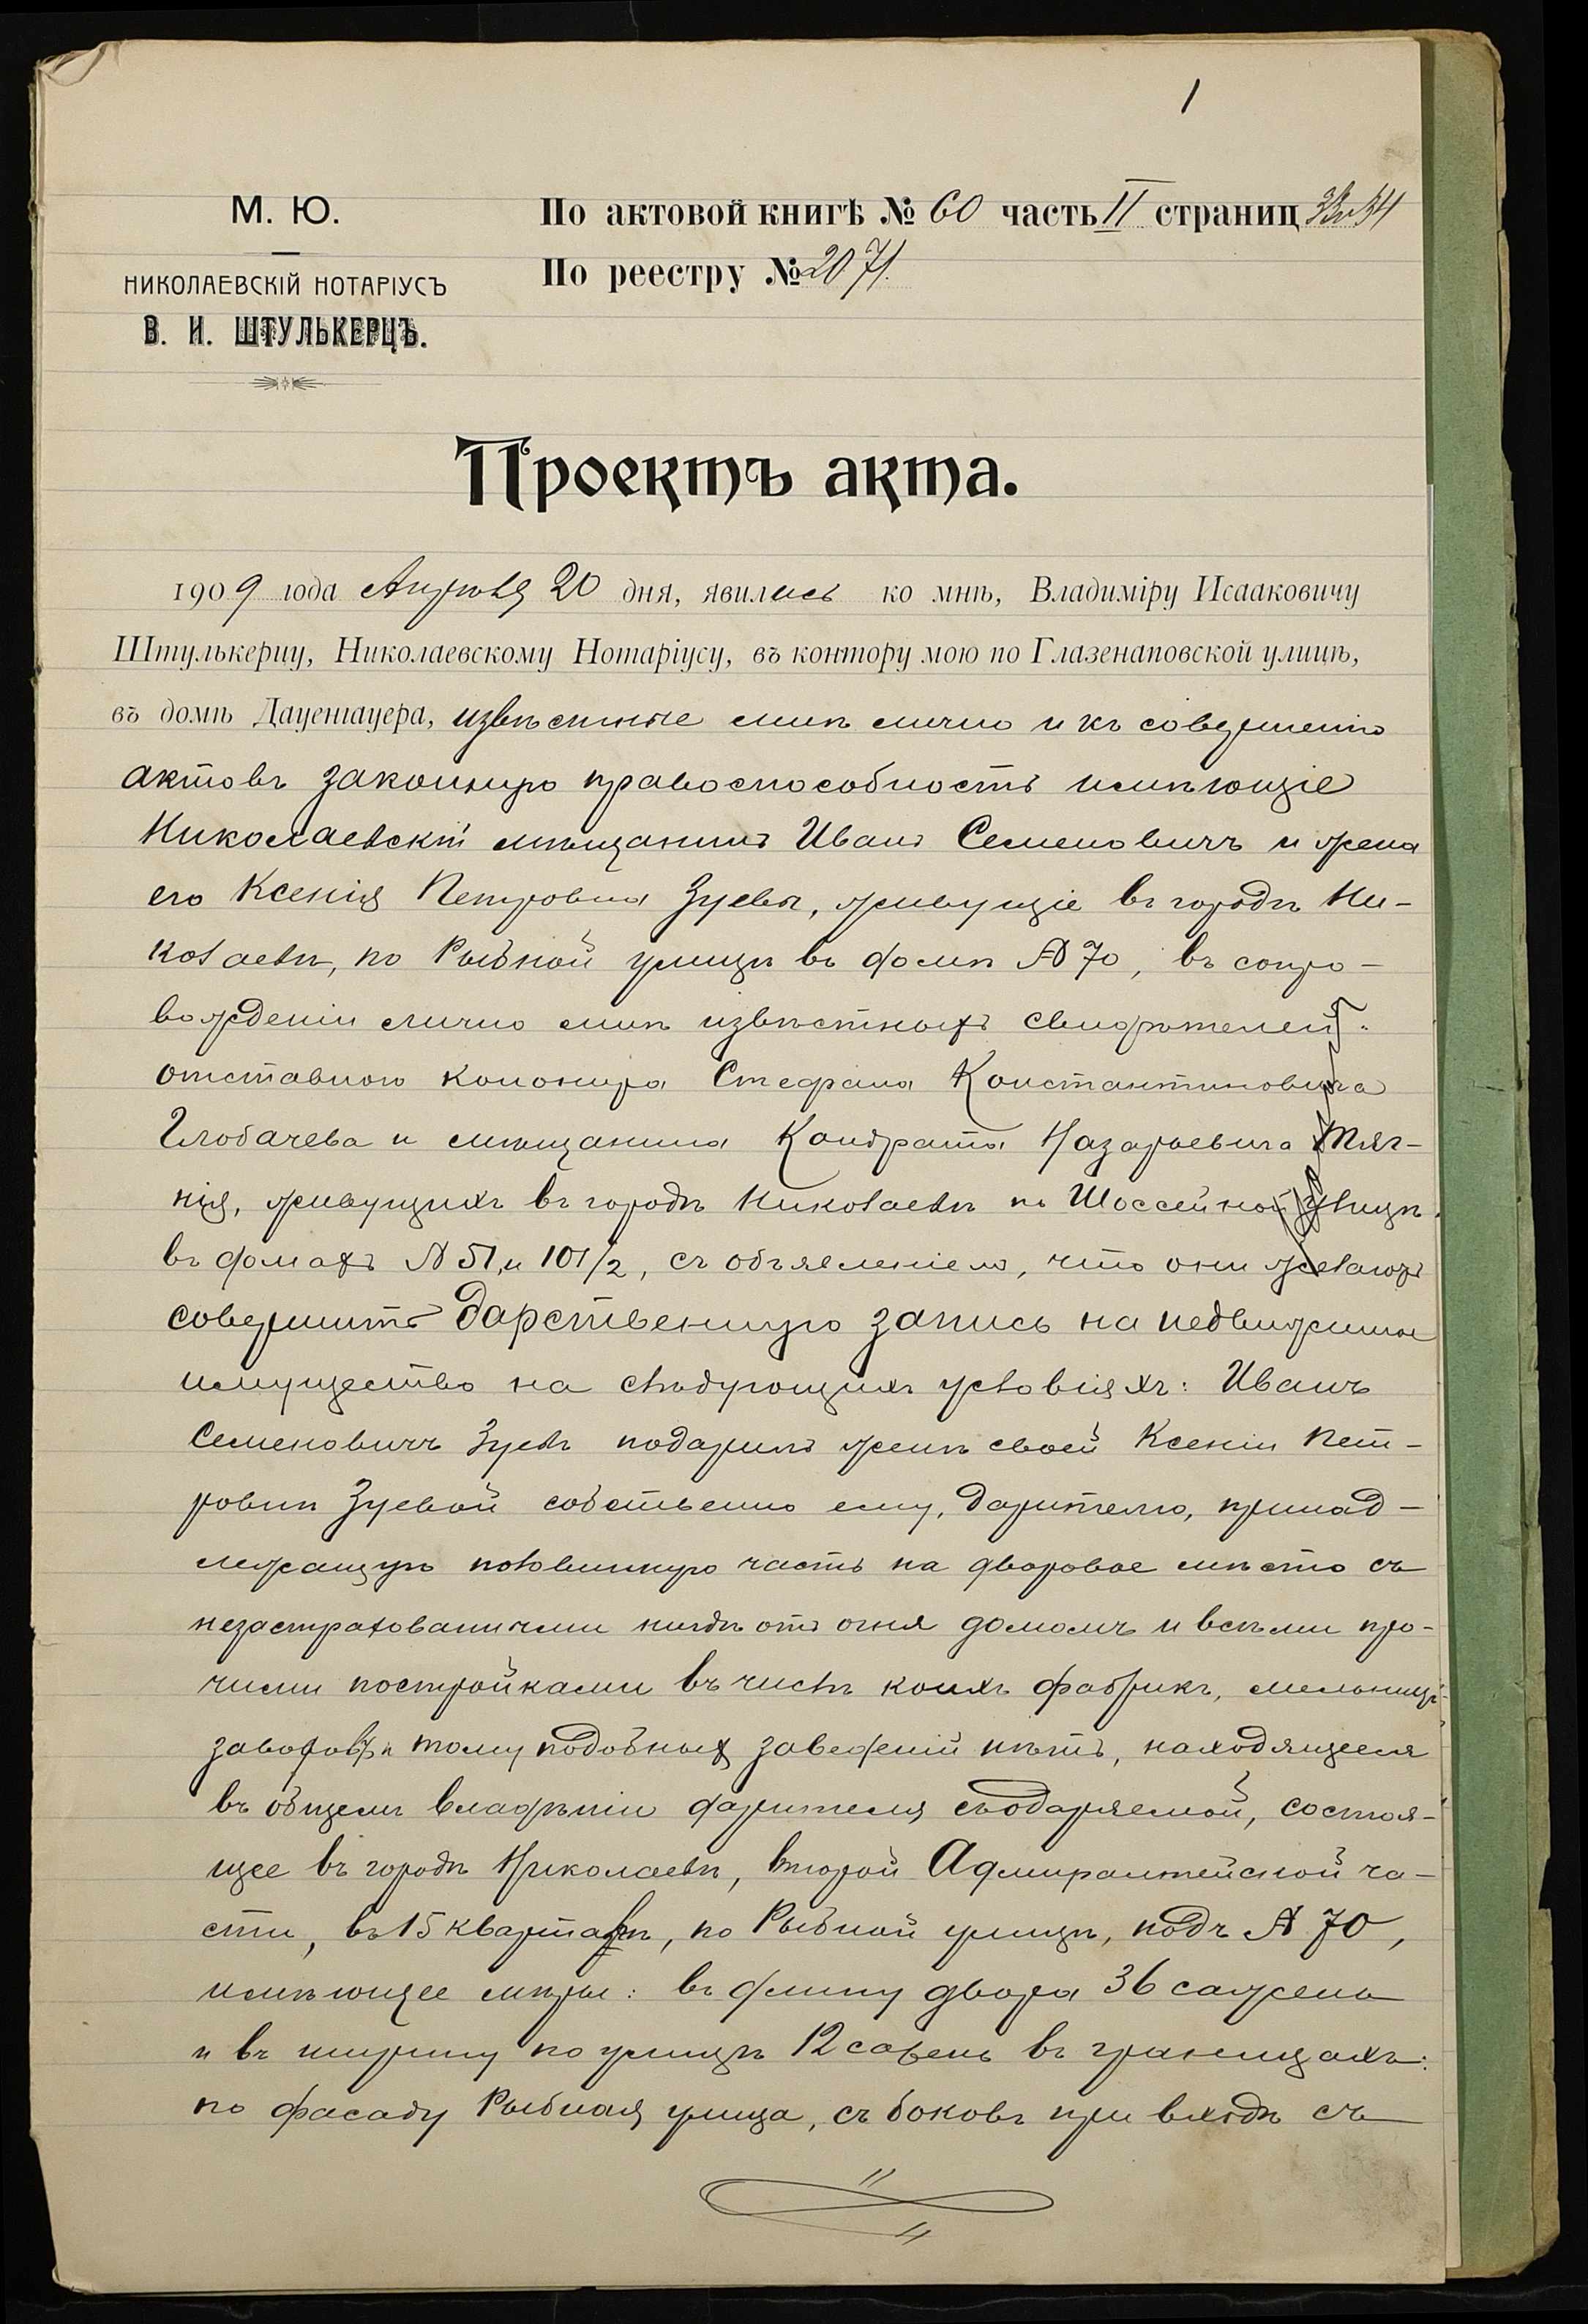 1
М. Ю.
НИКОЛАЕВСКІЙ НОТАРІУСЪ
В. И. ШТУЛЬКЕРЦЪ.
По актовой книгѣ № 60 часть II страниц 33 и 34
По реестру № 2071.
Проектъ акта.
1909 года Апрѣля 20 дня, явились ко мнѣ, Владиміру Исааковичу
Штулькерцу, Николаевскому Нотаріусу, въ контору мою по Глазенаповской улицѣ,
въ домѣ Дауенгауера, извѣстные мнѣ лично и къ совершенію
актовъ законную правоспособность имѣющіе
Николаевскій мѣщанинъ Иванъ Семеновичъ и жена
его Ксенія Петровна Зуевы, живущіе въ городѣ Ни-
колаевѣ, по Рыбной улицѣ въ домѣ № 70, въ сопро-
вожденіи лично мнѣ извѣстныхъ свидѣтелей:
отставного канонира Стефана Константиновича
Глобачева и мѣщанина Кондрата Назарьевича Тяг-
нія, живущихъ въ городѣ Николаевѣ по Шоссейной улицѣ
въ домахъ № 51 и 101/2, съ объявленіемъ, что они желаютъ
совершить дарственную запись на недвижимое
имущество на слѣдующихъ условіяхъ: Иванъ
Семеновичъ Зуевъ подарилъ женѣ своей Ксеніи Пет-
ровнѣ Зуевой собственно ему, дарителю, принад-
лежащую половинную часть на дворовое мѣсто съ
незастрахованными нигдѣ отъ огня домомъ и всѣми про-
чими постройками въ числѣ коихъ фабрикъ, мельницъ,
заводовъ и тому подобныхъ заведеній нѣтъ, находящееся
въ общемъ владѣніи дарителя съ одаряемой, состоя-
щее въ городѣ Николаевѣ, второй Адмиралтейской ча-
сти, въ 15 кварталѣ, по Рыбной улицѣ, подъ № 70,
имѣющее мѣры: въ длину двора 36 сажень
и въ ширину по улицѣ 12 сажень въ границахъ:
по фасаду Рыбная улица, съ боковъ при входѣ съ